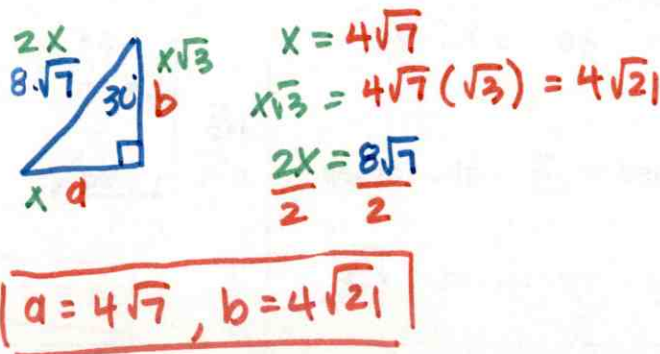 2x
8·√7
x√3
30°
b
x a
x = 4√7
x√3 = 4√7(√3) = 4√21
2x = 8√7
2 2
a = 4√7, b = 4√21